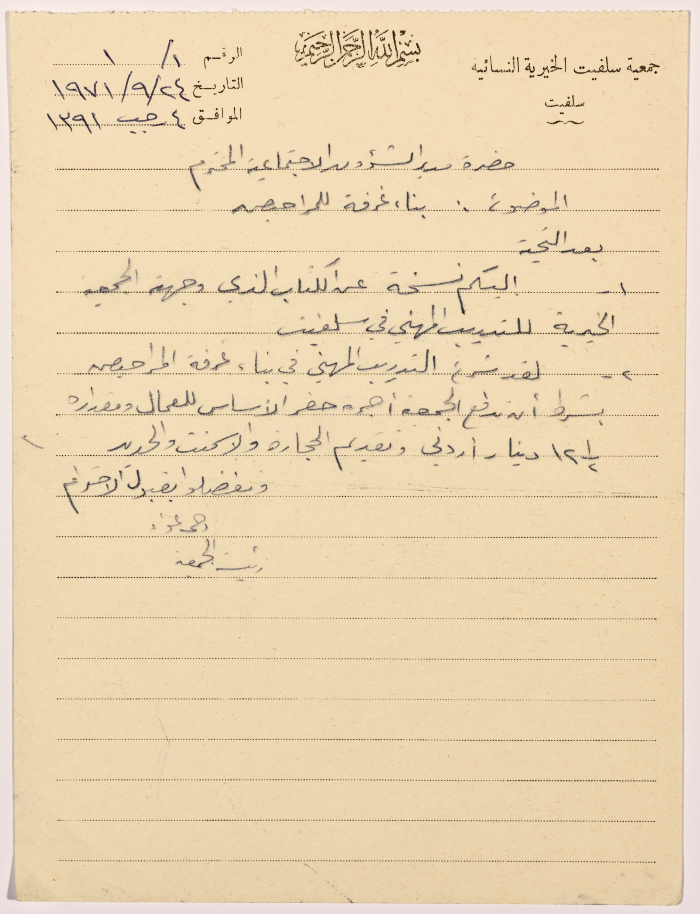 بسم الله الرحمن الرحيم
جمعية سلفيت الخيرية النسائيه
سلفيت
الرقم ١/ ١
التاريخ ٢٤/٩/١٩٧١
الموافق ٤ رجب ١٣٩١
حضرة مدير الشؤون الاجتماعية المحترم
الموضوع : بناء غرفة للمراحيض
بعد التحية
١- اليكم نسخة عن الكتاب الذي وجهته الجمعية
الخيرية للتدريب المهني في سلفيت
٢- لقد شرع التدريب المهني في بناء غرفة المراحيض
بشرط أن تدفع الجمعية أجره حفر الأساس للعمال ومقداره
١٢ ١/٢ دينار أردني وتقديم الحجاره والاسمنت والحديد
وتفضلوا بقبول الاحترام
رئيسة الجمعية